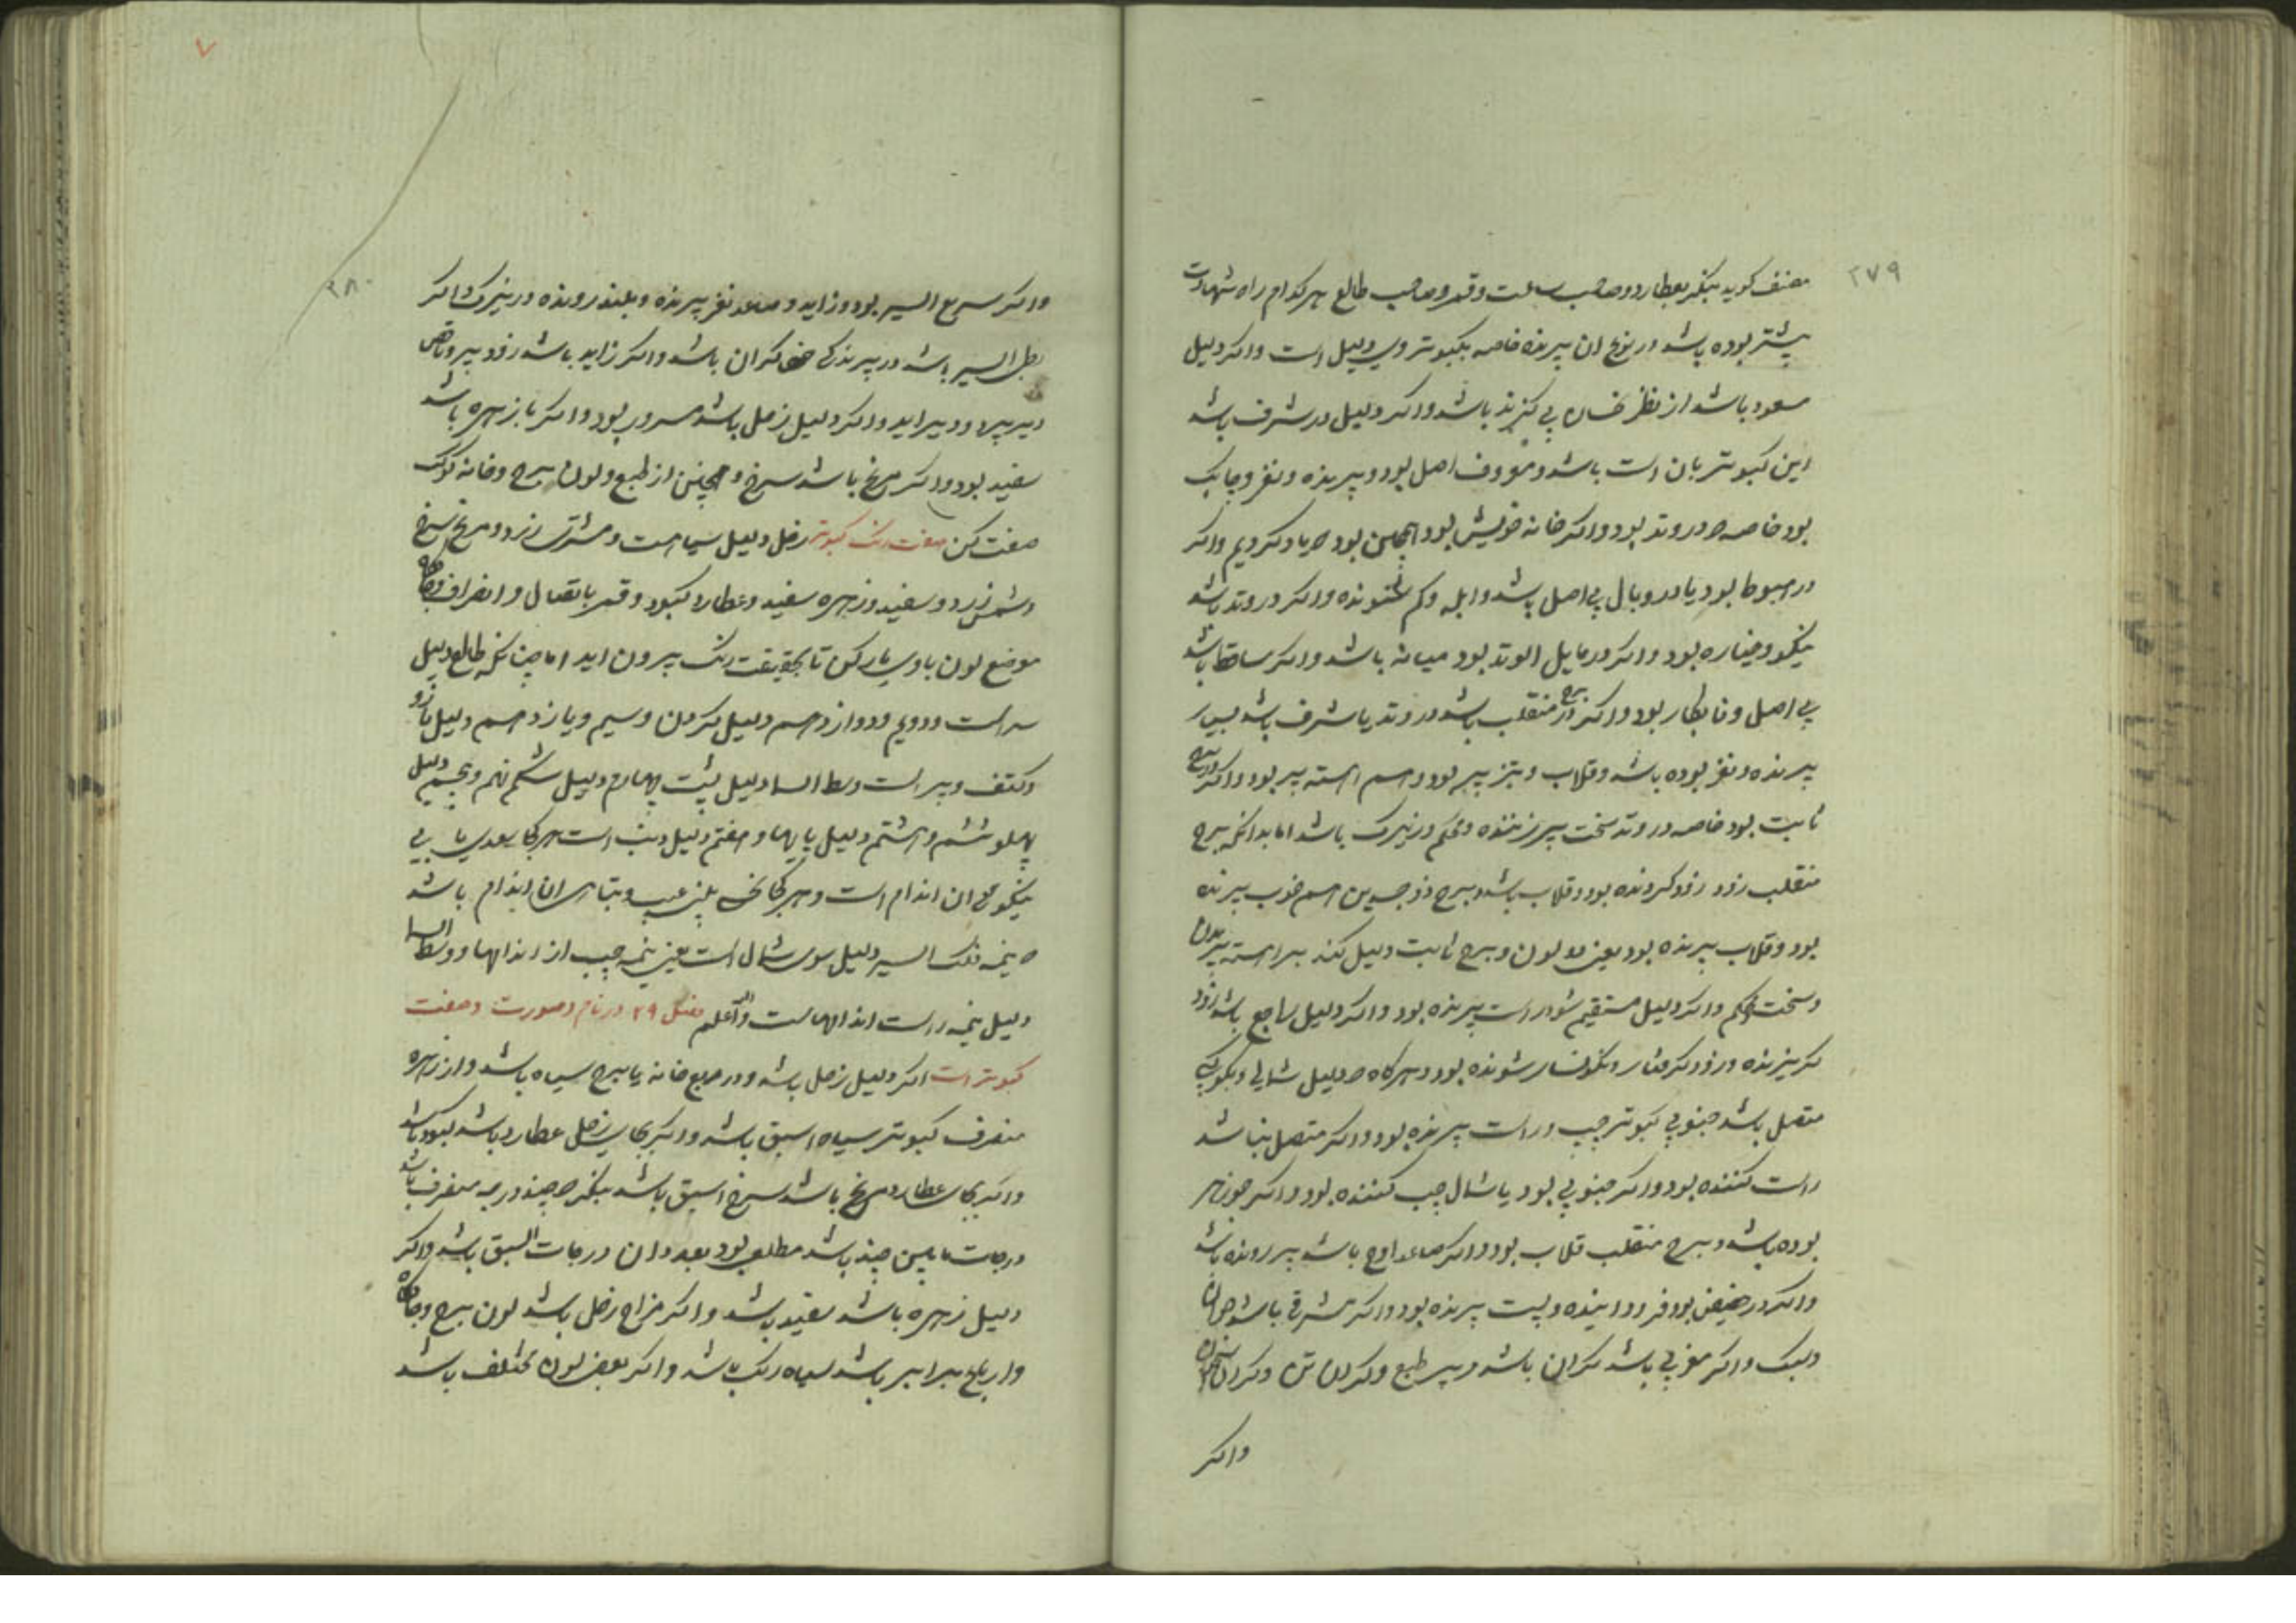 ۲۷۹
مصنف کوید بنکر بعطارد و صاحب ساعت و قمر و صاحب طالع هر کدام را شهادت
پیشتر بوده باشد در نوع ان پرنده خاصه بکبوتر وی دلیل است و اکر دلیل
مسعود باشد از نظر نحسان بی کزند باشد و اکر دلیل در شرف باشد
این کبوتر بان است باشد و معروف اصل بود و پرنده و نغز و چابک
بود خاصه در وتد بود و اکر خانه خویش بود همچنین بود یاد کردیم و اکر
در هبوط بود یا در وبال بی اصل باشد و ابله و کم شنونده و اکر در وتد باشد
نیکو و عیاره بود و اکر در مایل الوتد بود میانه باشد و اکر ساقط باشد
بی اصل و نابکار بود و اکر در برج منقلب باشد در وتد یا شرف باشد بسیار
پرنده و نغز بوده باشد و قلاب و تیز پر بود و هم اهسته پر بود و اکر در برج
ثابت بود خاصه در وتد سخت پر زننده و محکم و زیرک باشد اما بدانکه برج
منقلب زود زود کردنده بود و قلاب باشد و برج ذوجسدین هم خوب پرنده
بود و قلاب پرنده بود یعنی دو لون و برج ثابت دلیل کند بر اهسته پریدن
و سخت محکم و اکر دلیل مستقیم شود راست پرنده بود و اکر دلیل راجع باشد زود
کریزنده و زود کرفتار و نکونسار شونده بود و هر کاه دلیل شمالی و بکوکبی
متصل باشد جنوبی کبوتر چپ و راست پرنده بود و اکر متصل نباشد
راست کننده بود و اکر جنوبی بود یا شمال چپ کننده بود و اکر جوزهر
بوده باشد و برج منقلب قلاب بود و اکر صاعد اوج باشد پر رونده باشد
و اکر در حضیض بود فرود اینده و پست پرنده بود و اکر مشرقی باشد جوان
و سبک و اکر مغربی باشد کران باشد و پیر طبع و کران تن و کران
واکر
۲۸۰
و اکر سریع السیر بود و زاید و صاعد نغز پرنده و بلند رونده و زیرک و اکر
بطی السیر باشد در پرندکی کران باشد و اکر زاید باشد زود پر و ناقص
دیر پرد و دیر اید و اکر دلیل زحل باشد بود و اکر با زهره باشد
سفید بود و اکر مریخ باشد سرخ و همچنین از طبع و لون برج و خانه کوکب
صفت کن صفت رنک کبوتر زحل دلیل سیاهست و مشتری زرد و مریخ سرخ
و شمس زرد و سفید و زهره سفید و عطارد کبود و قمر باتصال و انصراف
موضع لون با وی یار کن تا بحقیقت رنک بیرون اید اما چنانکه طالع دلیل
سر است و دویم و دوازدهم دلیل کردن و سیم و یازدهم دلیل بازو
و کتف و پر است وسط السما دلیل پشت چهارم دلیل شکم نهم و پنجم دلیل
پهلو ششم و هشتم دلیل پایها و هفتم دلیل دنب است هر کجا سعدی یابی
نیکویی ان اندام است و هر کجا نحسی یابی عیب و تباهی ان اندام باشد
نیمه فلک السیر دلیل سوی شمال است یعنی نیمه چپ از اندامها و وسط السما
دلیل نیمه راست اندامهاست والله اعلم فصل ۲۹ در نام و صورت و صفت
کبوتر است اکر دلیل زحل باشد و در مربع خانه یا برج سیاه باشد و از زهره
منصرف کبوتر سیاه اسبق باشد و اکر بجای زحل عطارد باشد کبود باشد
و اکر بجای عطارد مریخ باشد سرخ اسبق باشد بنکر چند درجه منصرف باشد
درجات مابین چند باشد مطلع بود بعدد ان درجات السبق باشد و اکر
دلیل زهره باشد سفید باشد و اکر مزاج زحل باشد لون برج و
و ارباع برابر باشد سیاه رنک باشد و اکر بعضی لون مختلف باشد